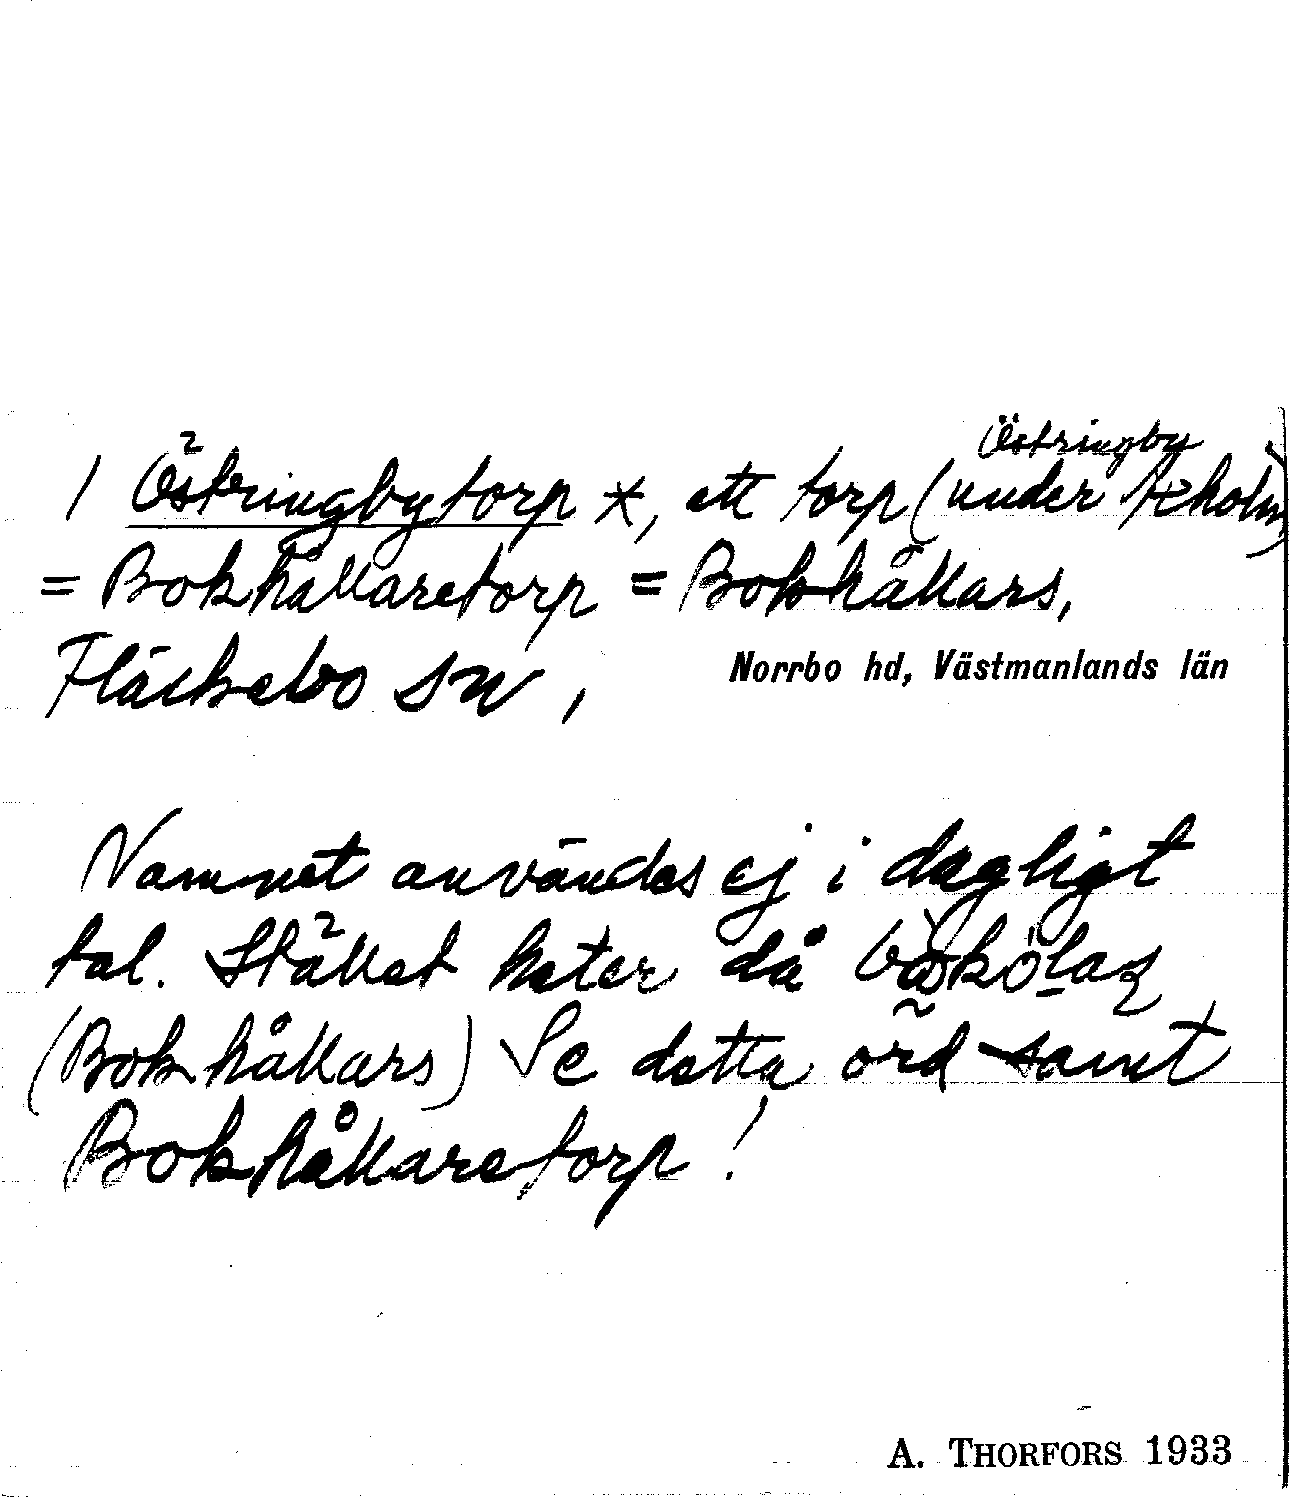 Östringby
1 Östringbytorp *, ett torp (under
= Bokhållaretorp = Bokhållars,
Fläckebo sn, Norrbo hd, Västmanlands län
Namnet användes ej i dagligt
tal. Stället heter då
(Bokhållars) Se detta ord samt
Bokhållaretorp!
A. THORFORS 1933